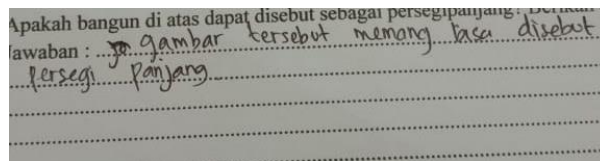 Apakah bangun di atas dapat disebut sebagai persegipanjang?
Jawaban : gambar tersebut memang basa disebut
persegi panjang